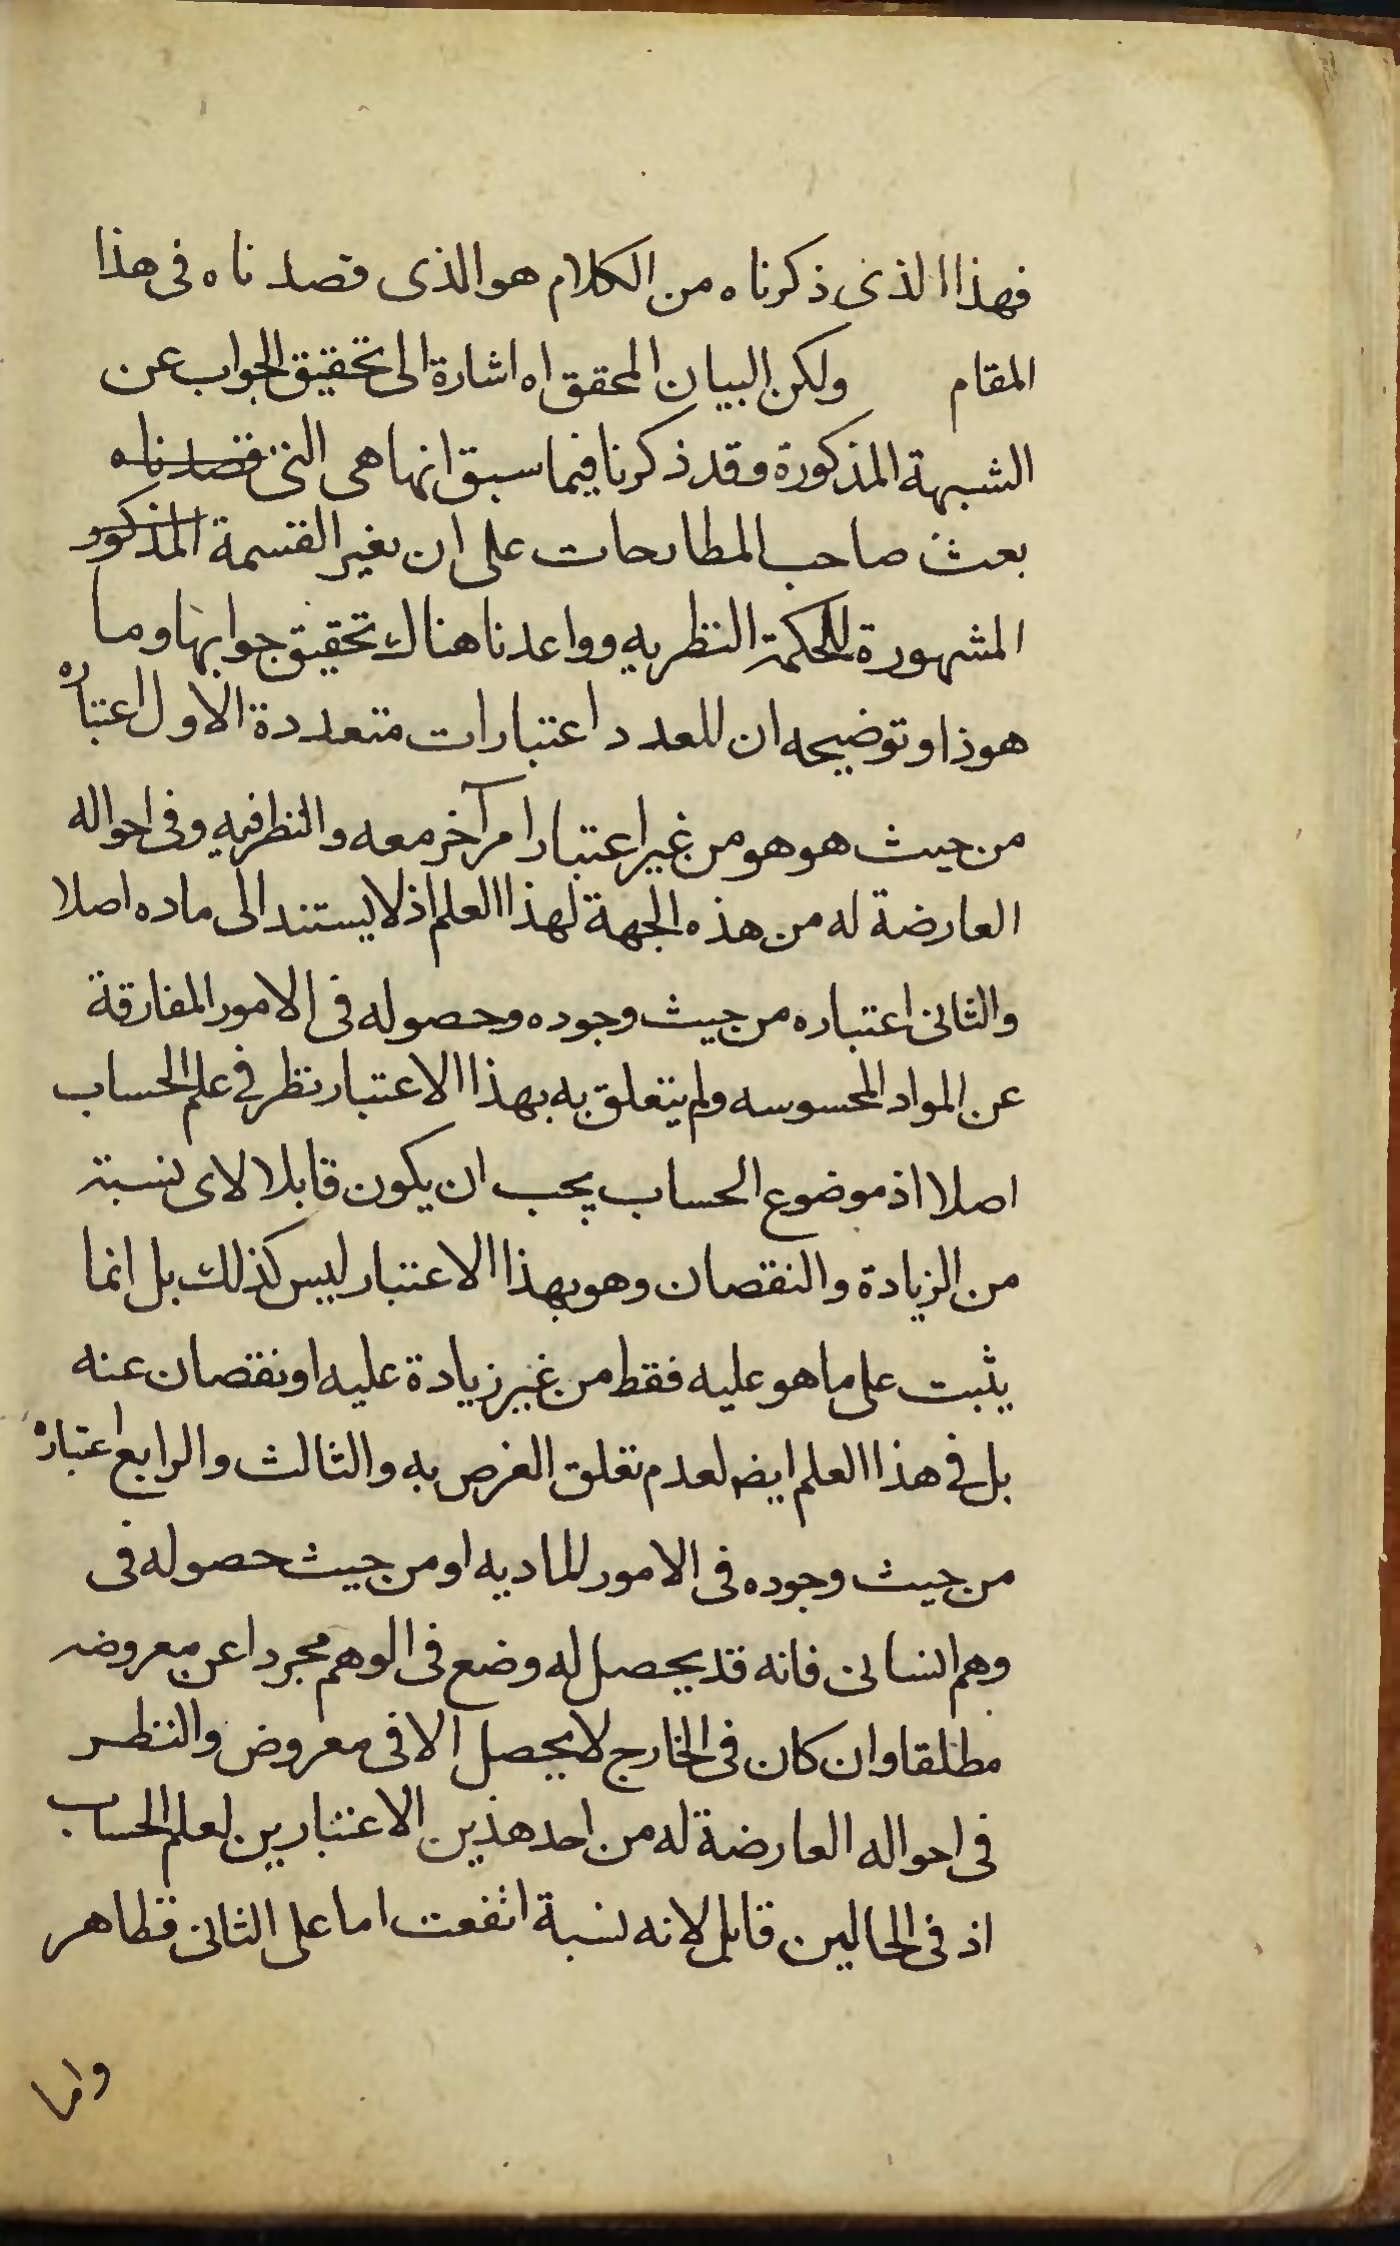 فهذا الذى ذكرناه من الكلام هو الذى قصدناه فى هذا
المقام ولكن البيان المحقق اه اشارة الى تحقيق الجواب عن
الشبهة المذكورة وقد ذكرنا فيما سبق انها هى التى قصدناه
بعث صاحب المطارحات على ان يغير القسمة المذكور
المشهورة للحكمة النظريه وواعدنا هناك تحقيق جوابها وما
هوذا وتوضيحه ان للعدد اعتبارات متعددة الاول اعتباره
من حيث هو هو من غير اعتبار امر آخر معه والنظر فيه وفى احواله
العارضة له من هذه الجهة لهذا العلم اذ لا يستند الى ماده اصلا
والثانى اعتباره من حيث وجوده وحصوله فى الامور المفارقة
عن المواد المحسوسه ولم يتعلق به بهذا الاعتبار نظر فى علم الحساب
اصلا اذ موضوع الحساب يجب ان يكون قابلا لاى نسبة
من الزيادة والنقصان وهو بهذا الاعتبار ليس كذلك بل انما
يثبت على ما هو عليه فقط من غير زيادة عليه او نقصان عنه
بل فى هذا العلم ايضا لعدم تعلق الغرض به والثالث والرابع اعتباره
من حيث وجوده فى الامور الماديه او من حيث حصوله فى
وهم انسانى فانه قد يحصل له وضع فى الوهم مجردا عن معروضه
مطلقا وان كان فى الخارج لا يحصل الا فى معروض والنظر
فى احواله العارضة له من احد هذين الاعتبارين لعلم الحساب
اذ فى الحالين قابل لانه نسبة اتفقت اما على الثانى فظاهر
واما